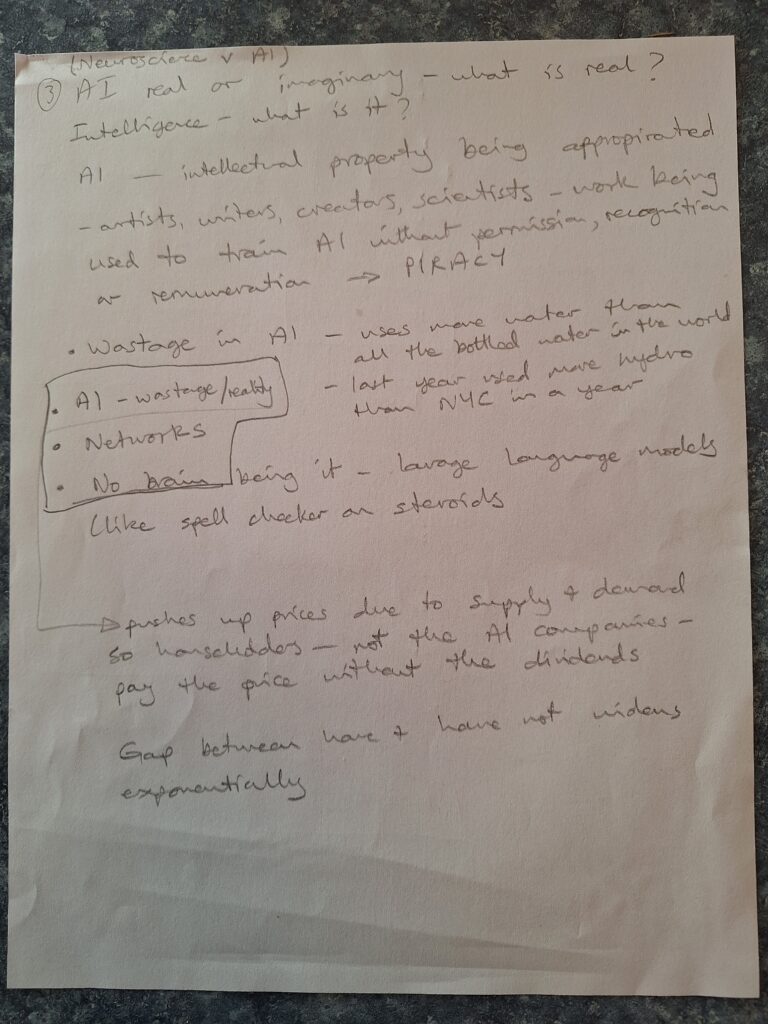 (Neuroscience v AI)
③ AI real or imaginary - what is real?
Intelligence - what is it?
AI — intellectual property being appropirated
- artists, writers, creators, scientists - work being
used to train AI without permission, recognition
or remuneration → PIRACY
• Wastage in AI - uses more water than
all the bottled water in the world
- last year used more hydro
than NYC in a year
• AI - wastage/reality
• Networks
• No brain being it - lavage language models
(like spell checker on steroids
→ pushes up prices due to supply & demand
so householders - not the AI companies -
pay the price without the dividends
Gap between have & have not widens
exponentially